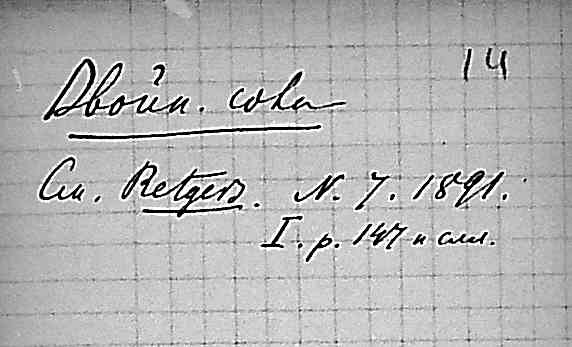 14
Двойн. соли
См. Retgers. N. 7. 1891.
I. p. 147 и слл.